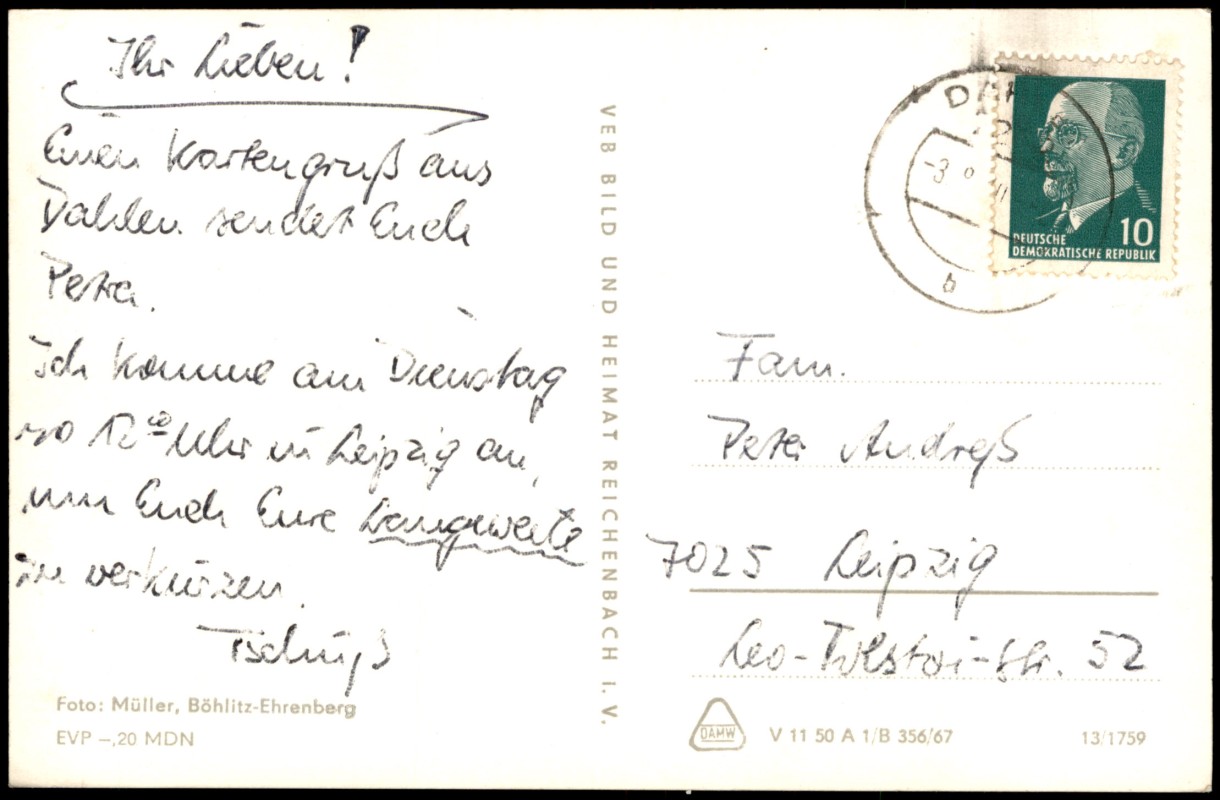 Ihr Lieben!
Einen Kartengruß aus
Dahlen sendet Euch
Petra.
Ich komme am Dienstag
so 12⁰⁰ Uhr in Leipzig an,
um Euch Eure Langeweile
zu verkürzen.
Tschüß
Foto: Müller, Böhlitz-Ehrenberg
EVP –,20 MDN
VEB BILD UND HEIMAT REICHENBACH I. V.
DAH
-3
b
10
DEUTSCHE
DEMOKRATISCHE REPUBLIK
Fam.
Peter Andreß
7025 Leipzig
Leo-Tolstoi-Str. 52
DAMW
V 11 50 A 1/B 356/67
13/1759